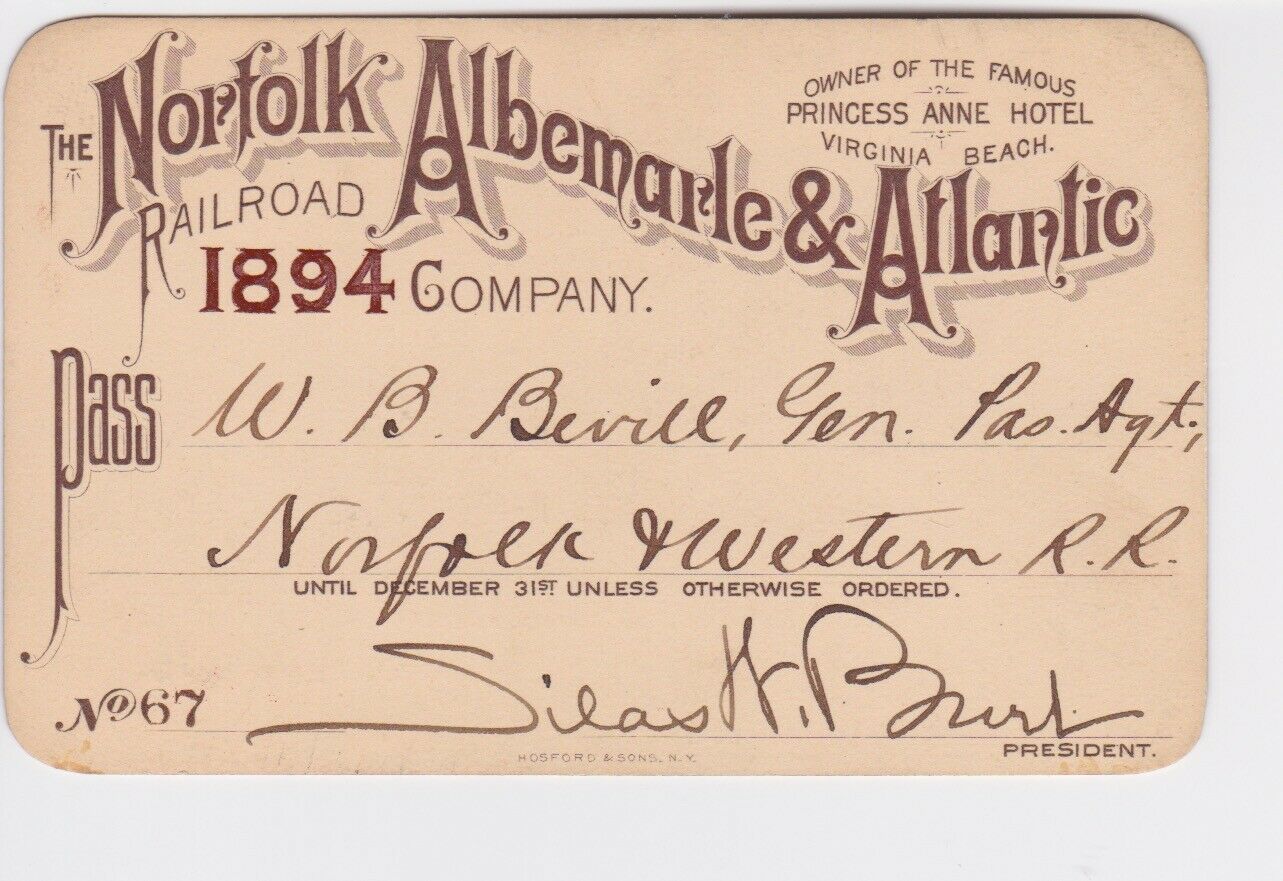 OWNER OF THE FAMOUS
PRINCESS ANNE HOTEL
VIRGINIA BEACH.
THE Norfolk Albemarle & Atlantic
RAILROAD
1894 COMPANY.
Pass W. B. Bevill, Gen. Pas. Agt.,
Norfolk & Western R. R.
UNTIL DECEMBER 31ST UNLESS OTHERWISE ORDERED.
No 67 Silas W. Burt
PRESIDENT.
HOSFORD & SONS, N.Y.